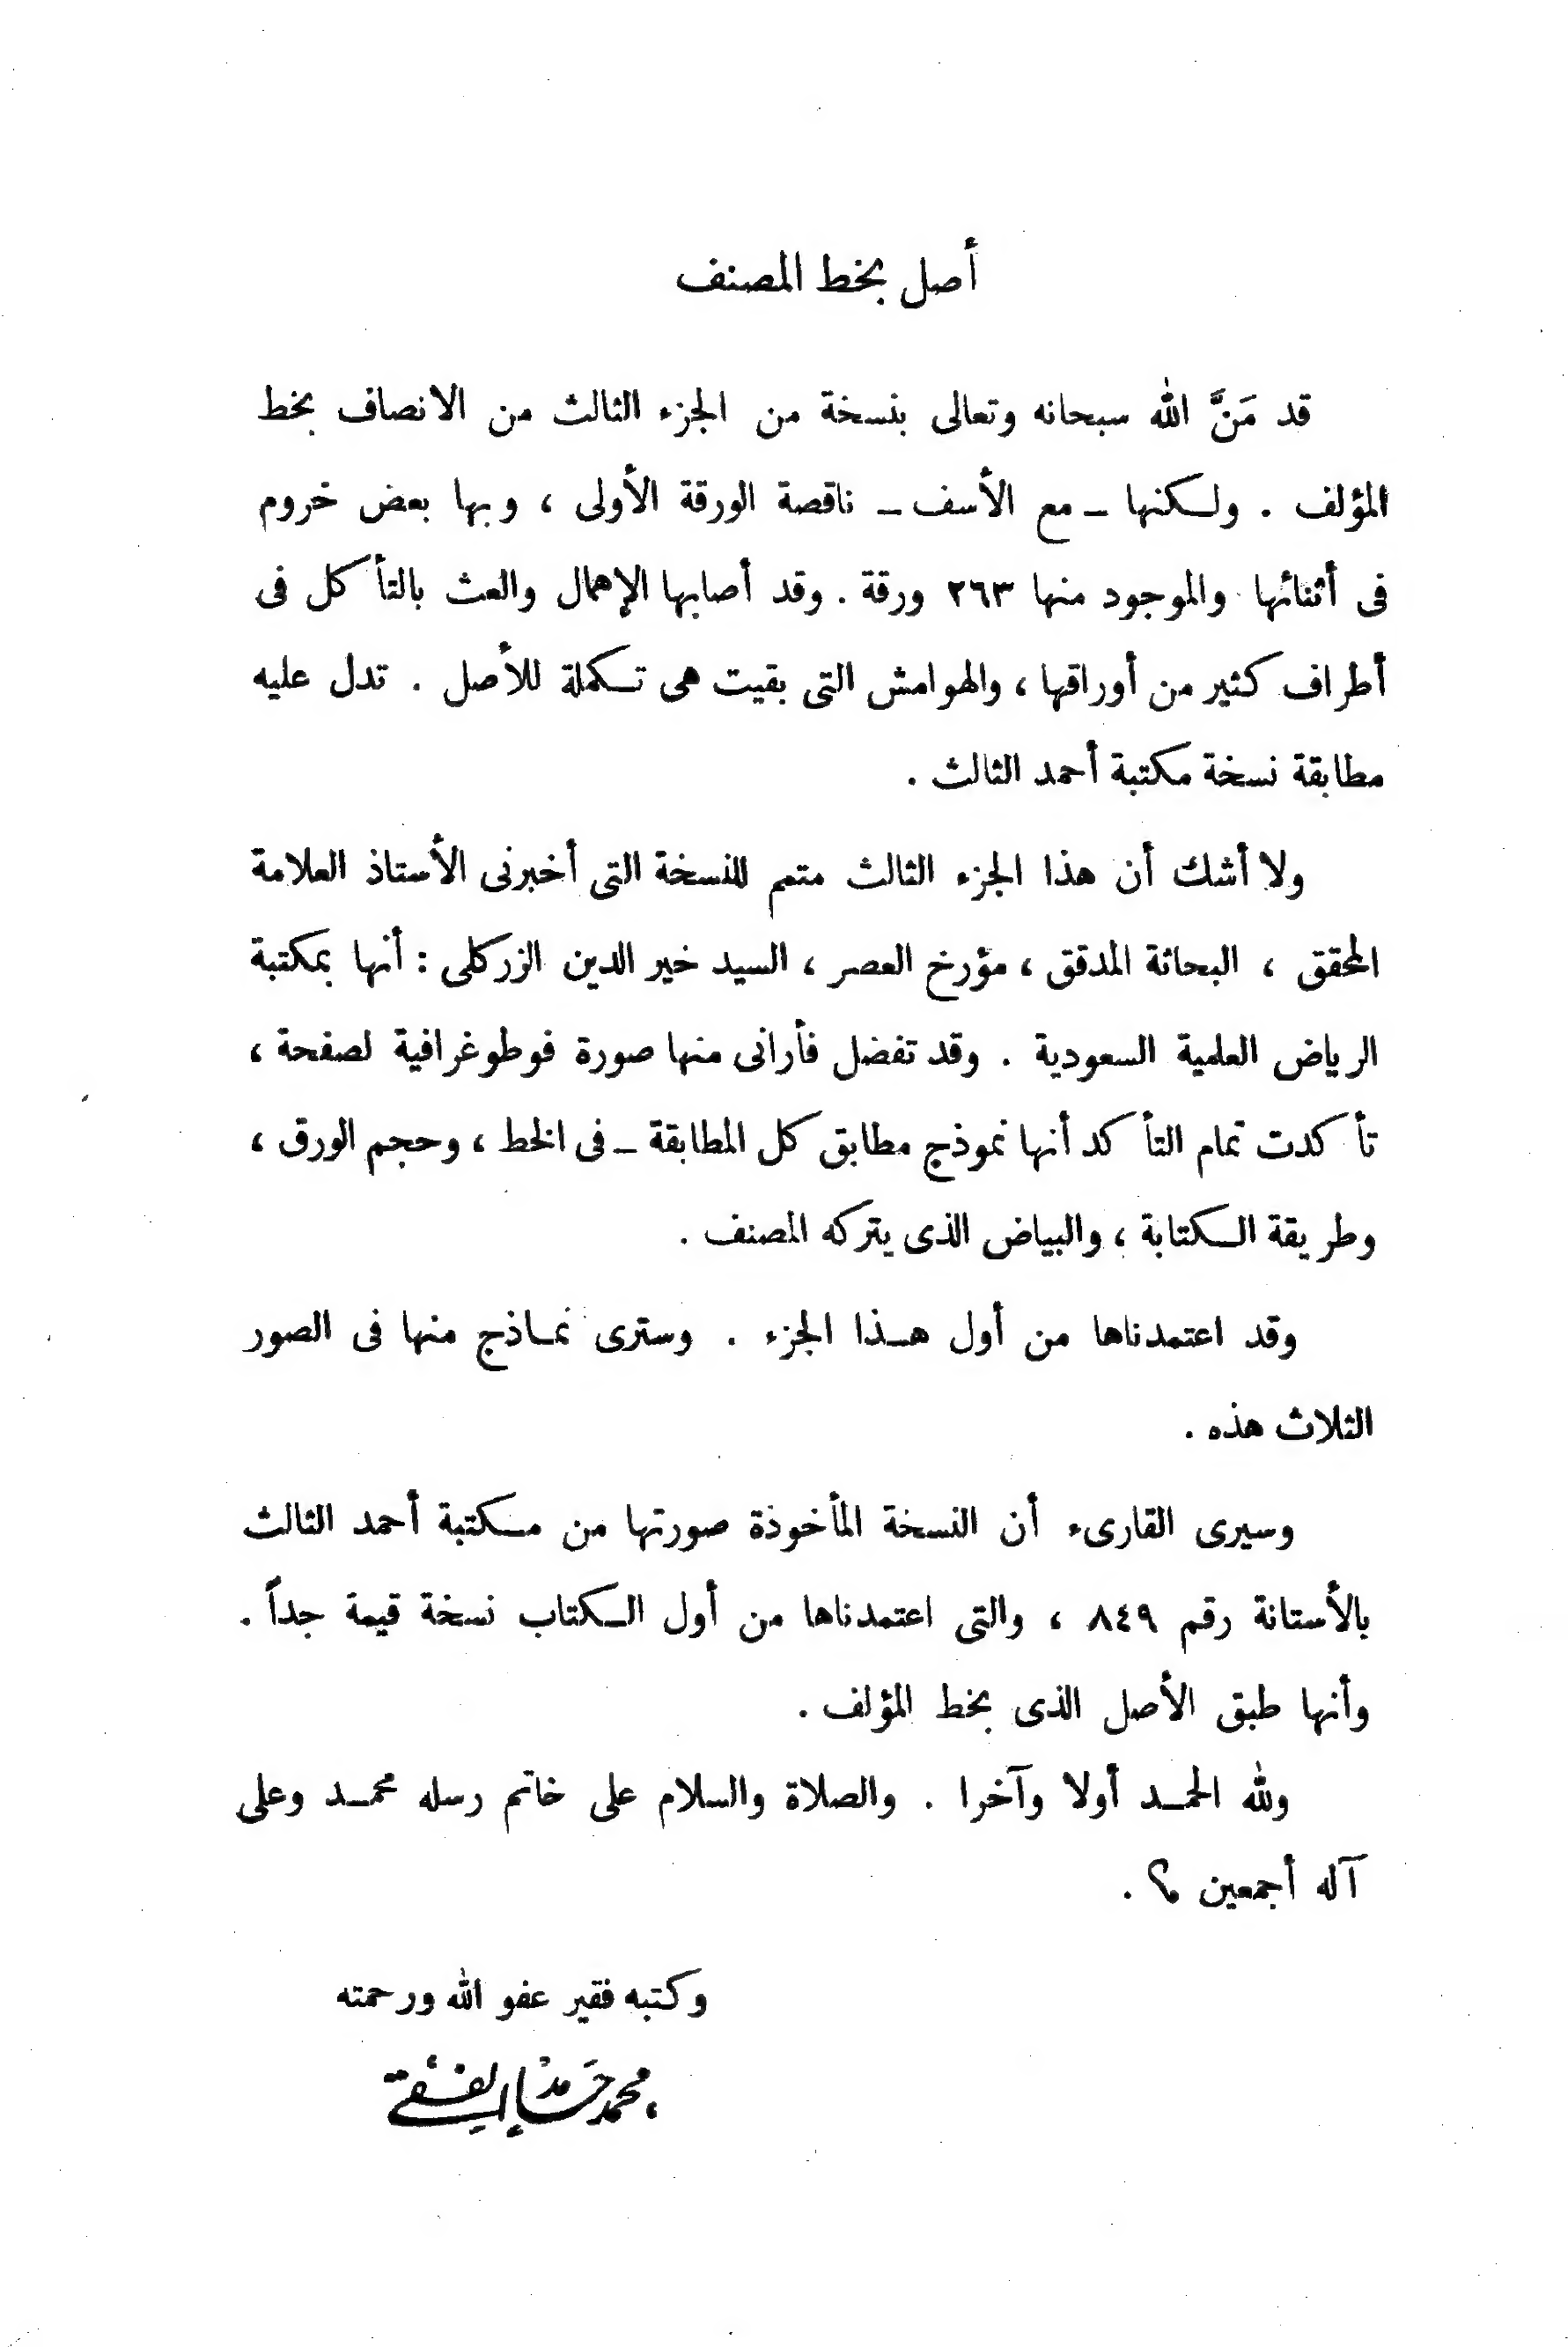 أصل بخط المصنف
قد مَنَّ الله سبحانه وتعالى بنسخة من الجزء الثالث من الانصاف بخط
المؤلف . ولكنها ـ مع الأسف ـ ناقصة الورقة الأولى ، وبها بعض خروم
فى أثنائها والموجود منها ٢٦٣ ورقة . وقد أصابها الإهمال والعث بالتأكل فى
أطراف كثير من أوراقها ، والهوامش التى بقيت هى تكملة للأصل . تدل عليه
مطابقة نسخة مكتبة أحمد الثالث .
ولا أشك أن هذا الجزء الثالث متمم للنسخة التى أخبرنى الأستاذ العلامة
المحقق ، البحاثة المدقق ، مؤرخ العصر ، السيد خير الدين الزركلى : أنها بمكتبة
الرياض العلمية السعودية . وقد تفضل فأرانى منها صورة فوطوغرافية لصفحة ،
تأكدت تمام التأكد أنها نموذج مطابق كل المطابقة ـ فى الخط ، وحجم الورق ،
وطريقة الكتابة ، والبياض الذى يتركه المصنف .
وقد اعتمدناها من أول هذا الجزء . وسترى نماذج منها فى الصور
الثلاث هذه .
وسيرى القارىء أن النسخة المأخوذة صورتها من مكتبة أحمد الثالث
بالأستانة رقم ٨٤٩ ، والتى اعتمدناها من أول الكتاب نسخة قيمة جداً .
وأنها طبق الأصل الذى بخط المؤلف .
ولله الحمد أولا وآخرا . والصلاة والسلام على خاتم رسله محمد وعلى
آله أجمعين .
وكتبه فقير عفو الله ورحمته
محمد حامد الفقى